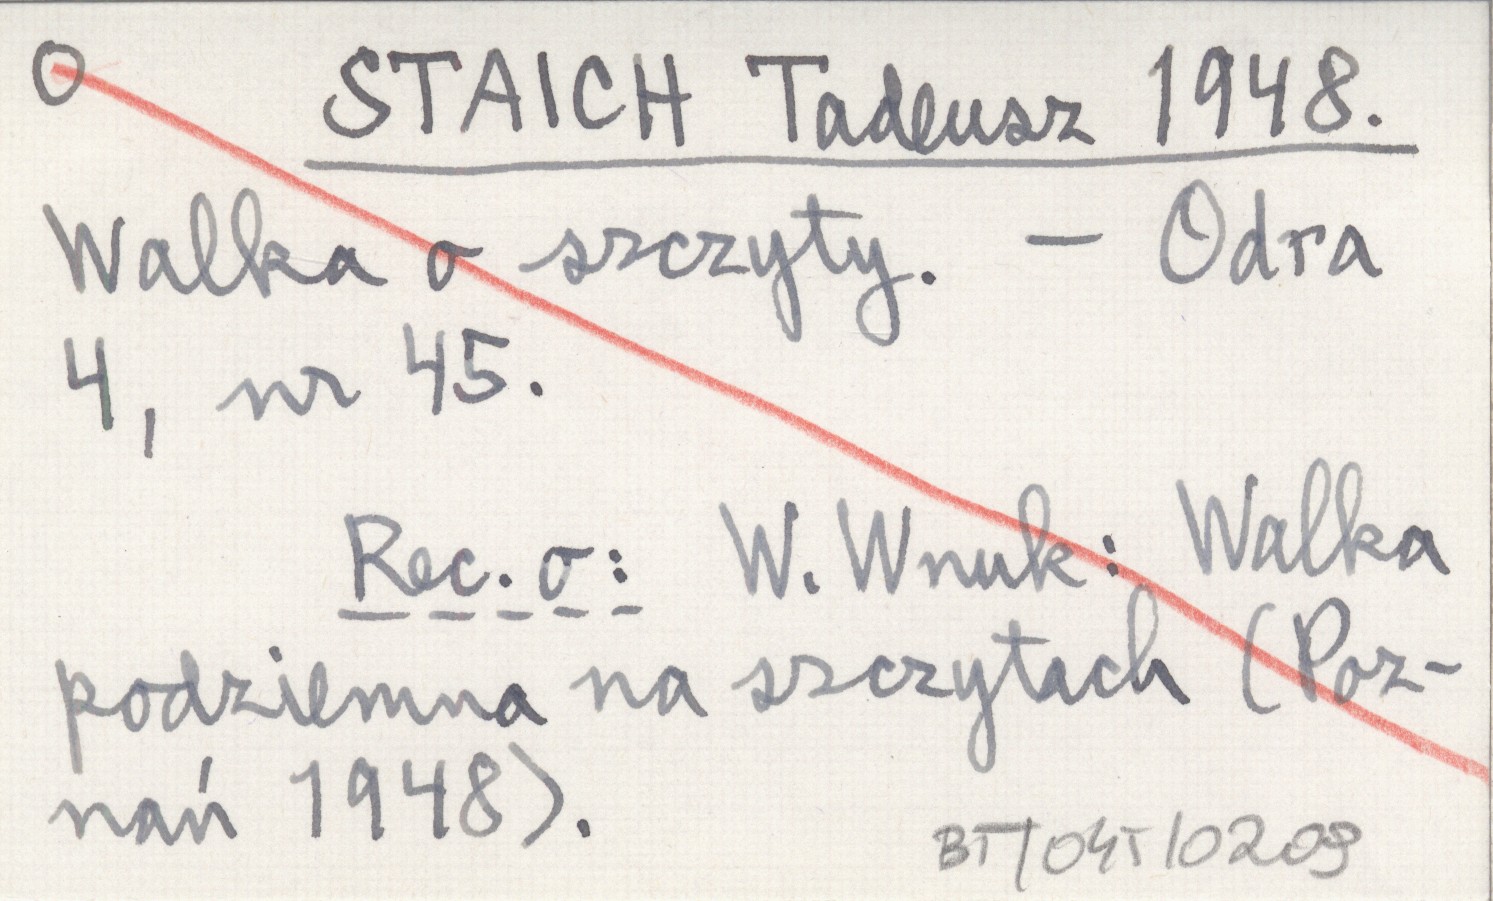 O STAICH Tadeusz 1948.
Walka o szczyty. – Odra
4, nr 45.
Rec. o: W. Wnuk: Walka
podziemna na szczytach (Poz-
nań 1948).
BT/04T/0209